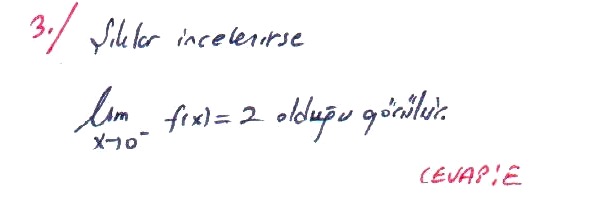 3./ Şıklar incelenirse
lim f(x) = 2 olduğu görülür.
x→0⁻
CEVAP: E